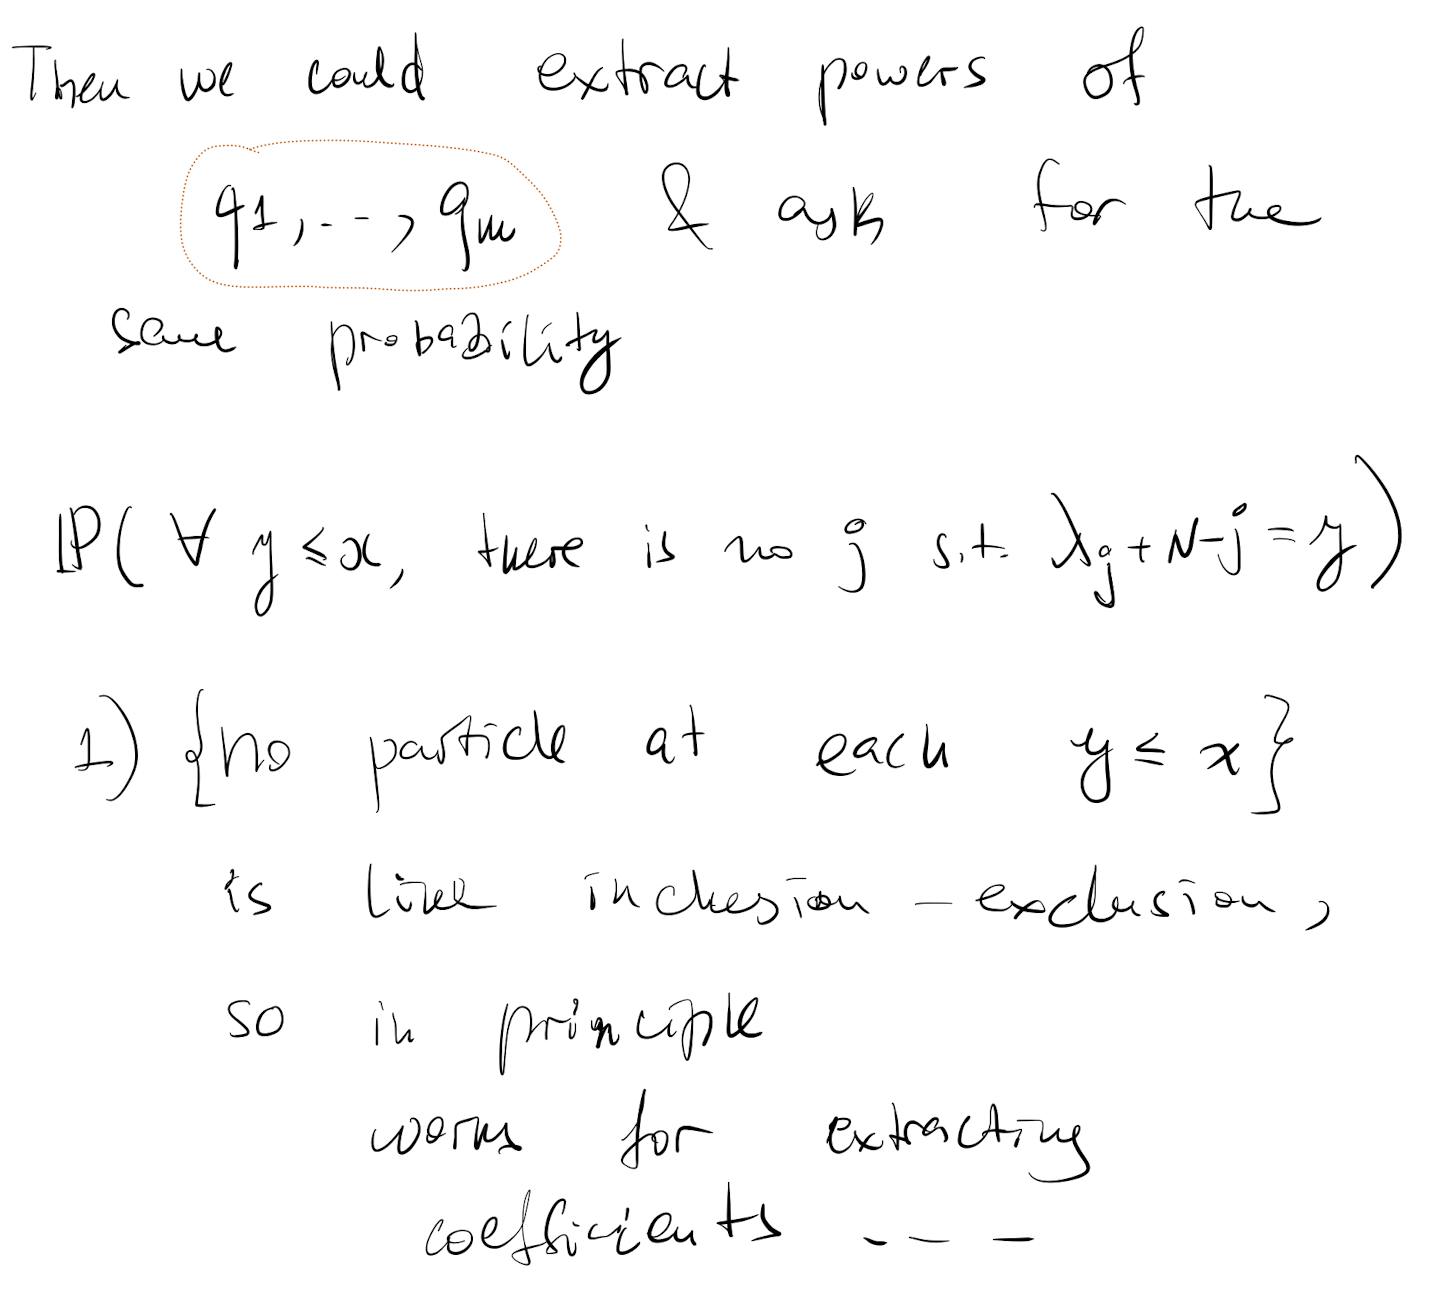 Then we could extract powers of
q1, ..., qm & ask for the
same probability
P( ∀ y ≤ x, there is no j s.t. λj + N-j = y )
1) {no particle at each y ≤ x}
is like inclusion - exclusion,
so in principle
works for extracting
coefficients - - -